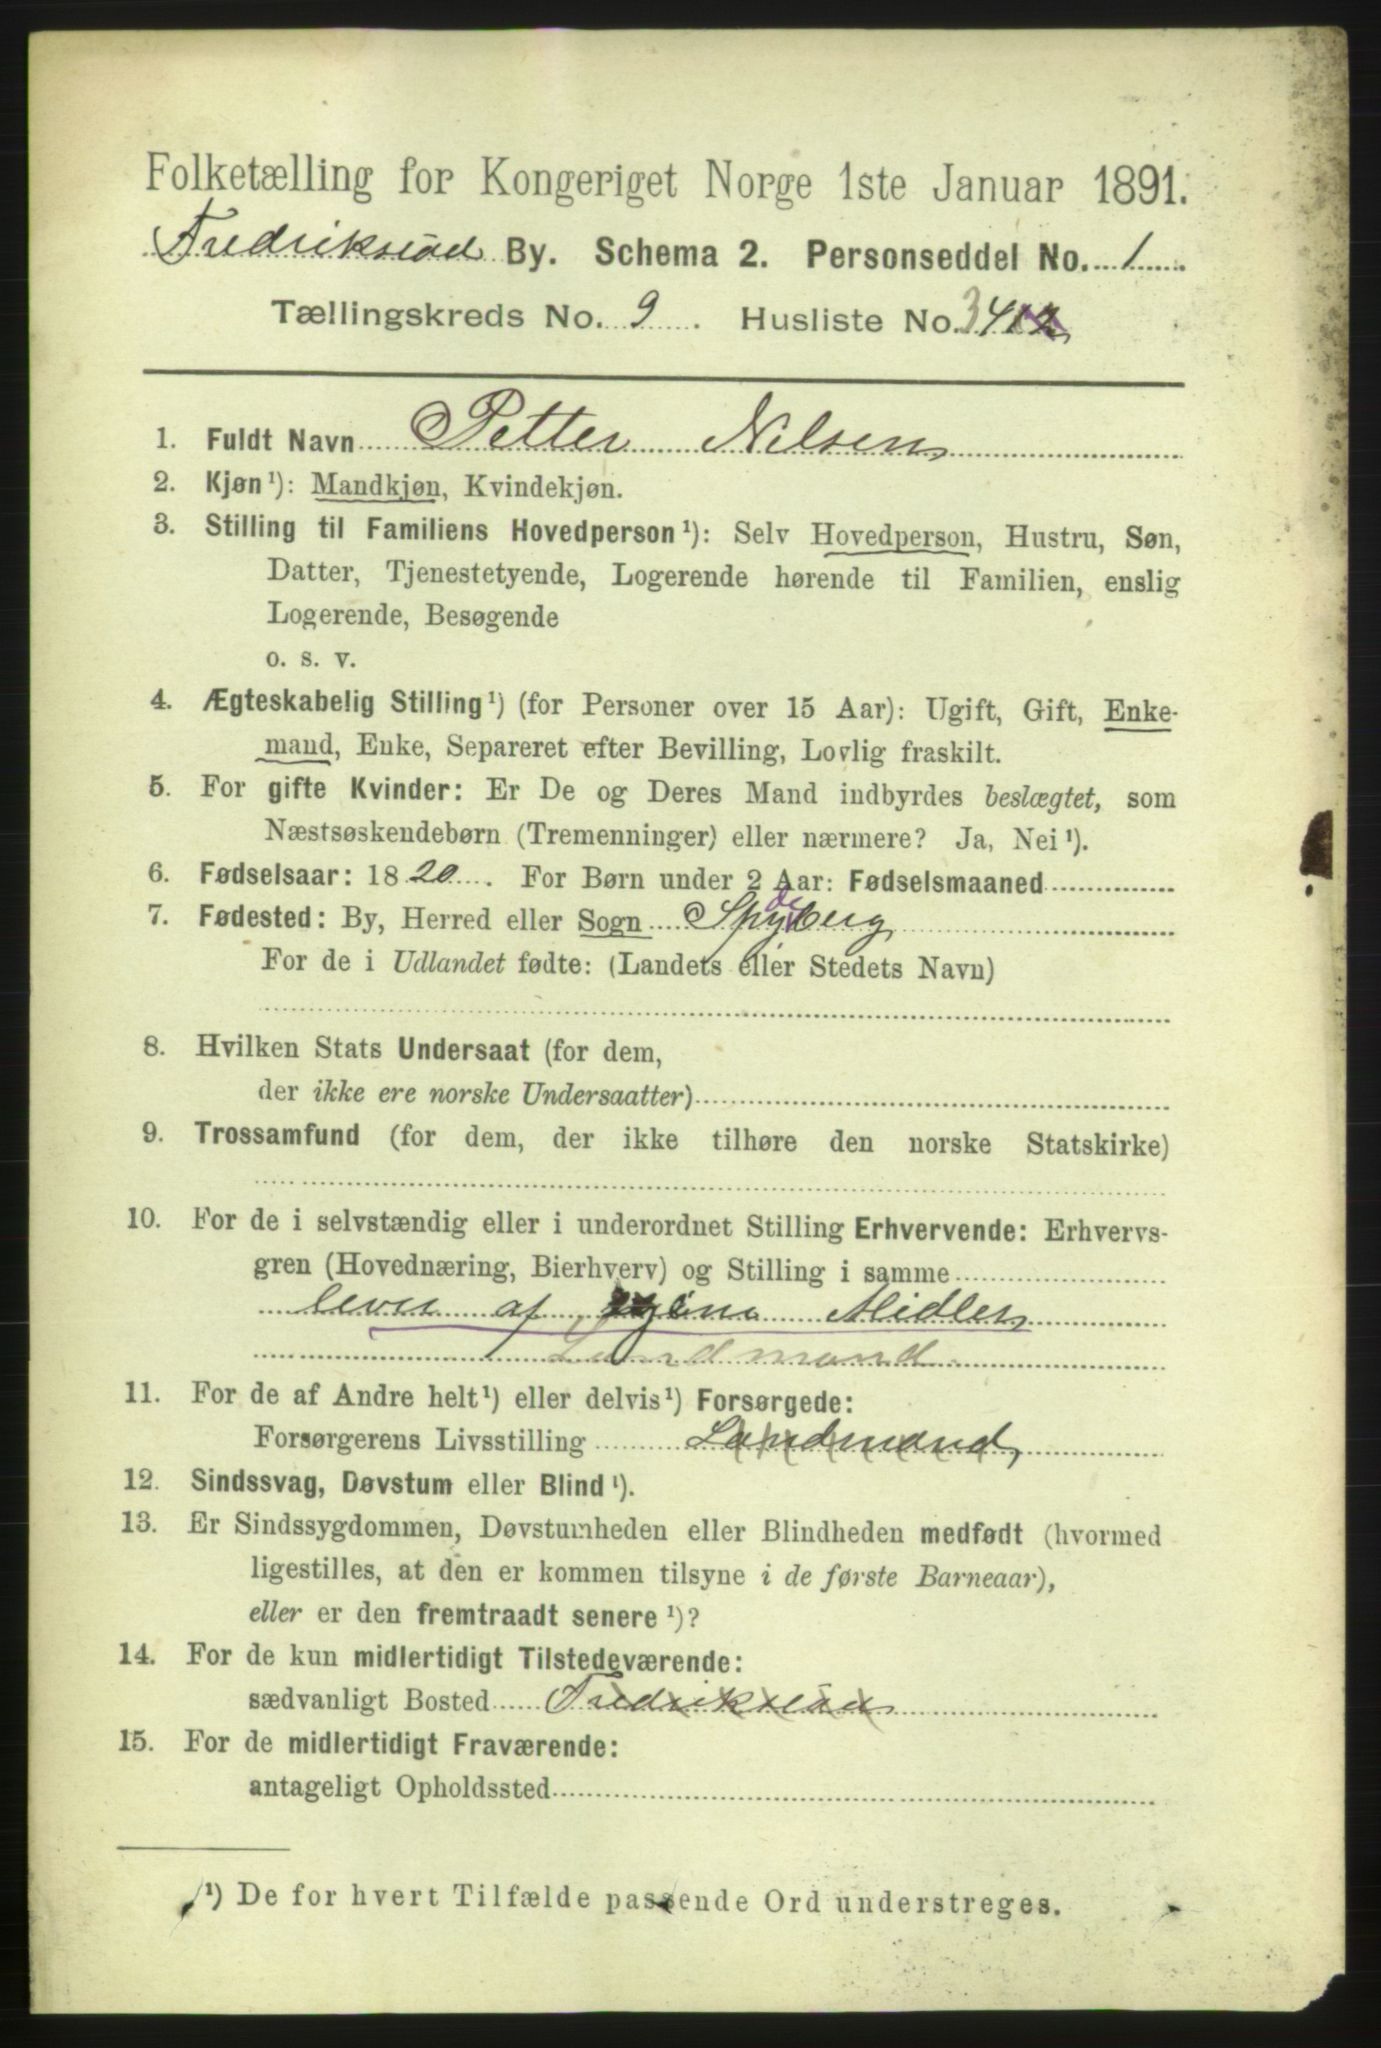 Folketælling for Kongeriget Norge 1ste Januar 1891.
Fredriksstad By. Schema 2. Personseddel No. 1
Tællingskreds No. 9. Husliste No. 34
1. Fuldt Navn Petter Nilsen
2. Kjøn¹): Mandkjøn, Kvindekjøn.
3. Stilling til Familiens Hovedperson¹): Selv Hovedperson, Hustru, Søn,
Datter, Tjenestetyende, Logerende hørende til Familien, enslig
Logerende, Besøgende
o. s. v.
4. Ægteskabelig Stilling¹) (for Personer over 15 Aar): Ugift, Gift, Enke-
mand, Enke, Separeret efter Bevilling, Lovlig fraskilt.
5. For gifte Kvinder: Er De og Deres Mand indbyrdes beslægtet, som
Næstsøskendebørn (Tremenninger) eller nærmere? Ja, Nei¹).
6. Fødselsaar: 1820. For Børn under 2 Aar: Fødselsmaaned
7. Fødested: By, Herred eller Sogn Spydeberg
For de i Udlandet fødte: (Landets eller Stedets Navn)
8. Hvilken Stats Undersaat (for dem,
der ikke ere norske Undersaatter)
9. Trossamfund (for dem, der ikke tilhøre den norske Statskirke)
10. For de i selvstændig eller i underordnet Stilling Erhvervende: Erhvervs-
gren (Hovednæring, Bierhverv) og Stilling i samme
lever af egine Midler
Landmand
11. For de af Andre helt¹) eller delvis¹) Forsørgede:
Forsørgerens Livsstilling Landmand,
12. Sindssvag, Døvstum eller Blind¹).
13. Er Sindssygdommen, Døvstumheden eller Blindheden medfødt (hvormed
ligestilles, at den er kommen tilsyne i de første Barneaar),
eller er den fremtraadt senere¹)?
14. For de kun midlertidigt Tilstedeværende:
sædvanligt Bosted Fredriksstad
15. For de midlertidigt Fraværende:
antageligt Opholdssted
¹) De for hvert Tilfælde passende Ord understreges.